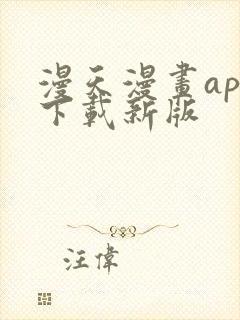 漫天漫畫ap
下載新版
汪偉